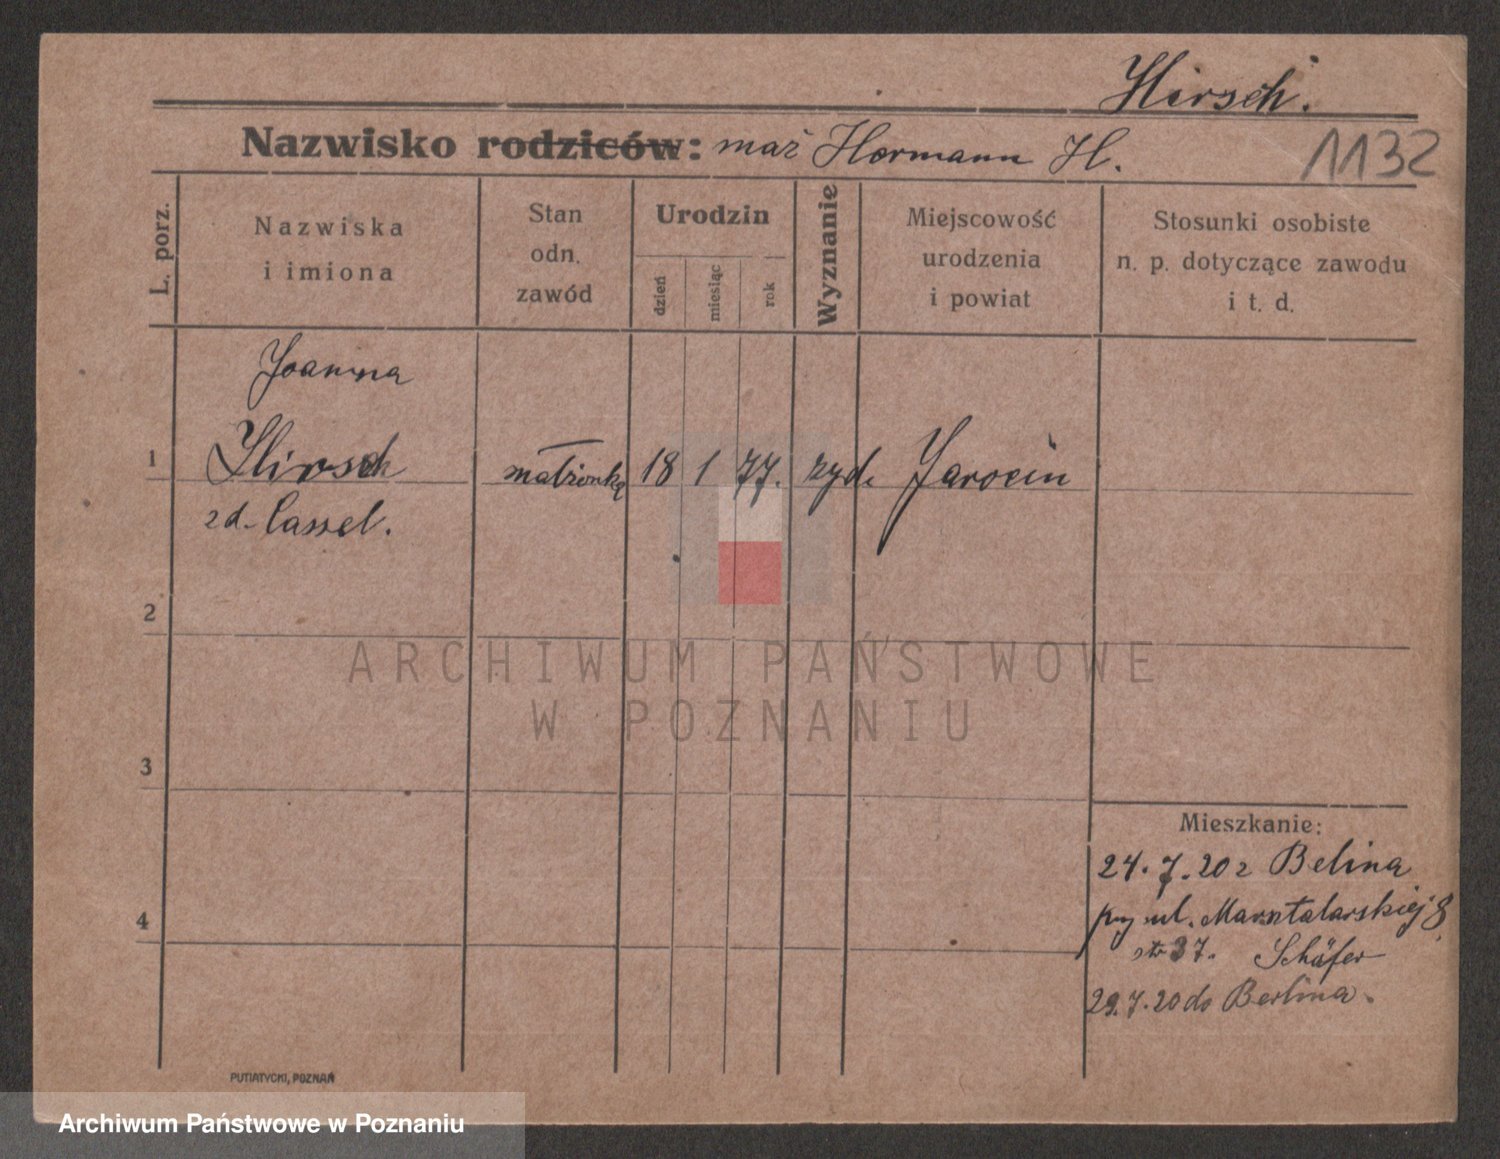 Hirsch.
Nazwisko rodziców: maż Hermann H.
1132
L. porz.
Nazwiska
i imiona
Stan
odn.
zawód
Urodzin
dzień
miesiąc
rok
Wyznanie
Miejscowość
urodzenia
i powiat
Stosunki osobiste
n. p. dotyczące zawodu
i t. d.
Joanna
1 Hirsch małżonka 18 1 77. żyd. Jarocin
zd. Cassel.
2
3
4
Mieszkanie:
24.7.20 z Belina
przy ul. Masztalarskiej 8
37. Schäfer
29.7.20 do Berlina.
PUTIATYCKI, POZNAŃ
ARCHIWUM PAŃSTWOWE
W POZNANIU
Archiwum Państwowe w Poznaniu